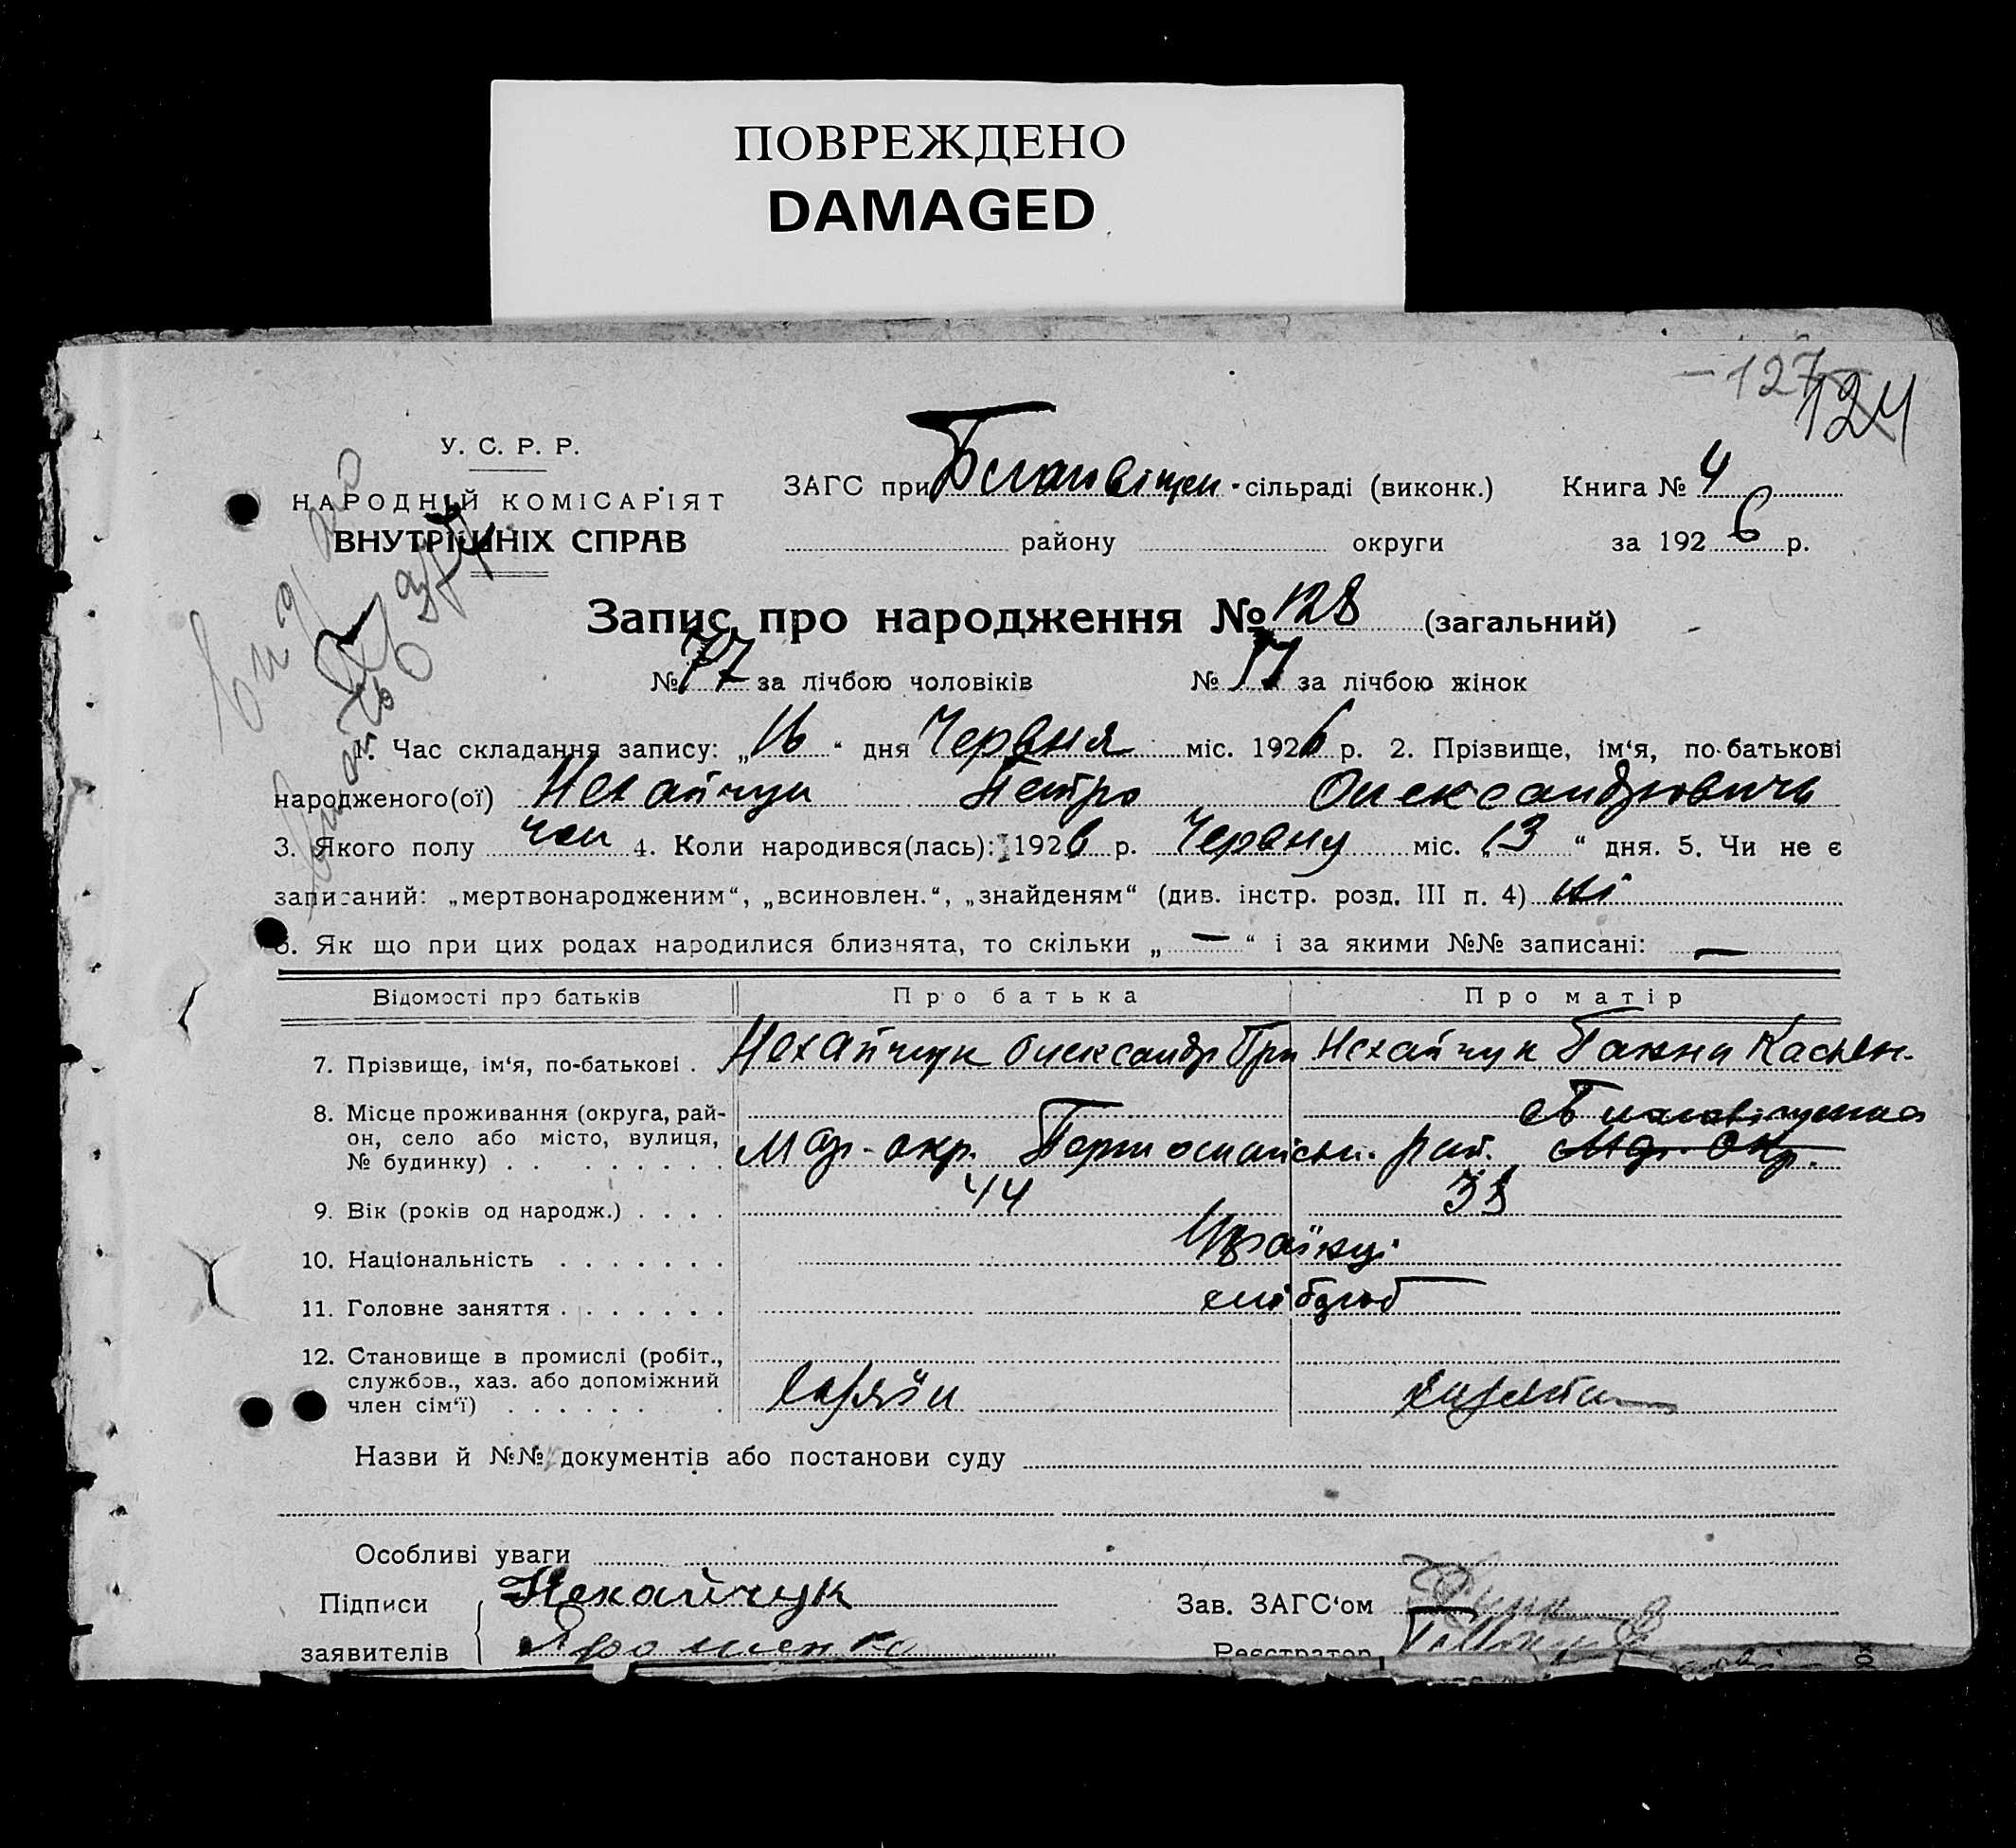 ПОВРЕЖДЕНО
DAMAGED
-127
124
У. С. Р. Р.
НАРОДНІЙ КОМІСАРІЯТ
ВНУТРІШНІХ СПРАВ
ЗАГС при Благовіщен. сільраді (виконк.) Книга № 4
району округи за 1926 р.
Запис про народження № 128 (загальний)
№ 77 за лічбою чоловіків № за лічбою жінок
1. Час складання запису: „16“ дня Червня міс. 1926 р. 2. Прізвище, ім‘я, по-батькові
народженого(ої) Нехайчук Петро Олександровичь
3. Якого полу чол 4. Коли народився(лась): 1926 р. Червня міс. „13“ дня. 5. Чи не є
записаний: „мертвонародженим“, „всиновлен.“, „знайденям“ (див. інстр. розд. III п. 4) ні
6. Як що при цих родах народилися близнята, то скільки „—“ і за якими №№ записані: —
Відомості про батьків Про батька Про матір
7. Прізвище, ім‘я, по-батькові . Нехайчук Олександр Гри Нехайчук Ганна Касьян.
8. Місце проживання (округа, рай-
он, село або місто, вулиця,
№ будинку) . . . . . . . . Мар. окр. Першомайськ. рай. с Благовіщенка Мар. Окр.
9. Вік (років од народж.) . . . . 44 38
10. Національність . . . . . . . Українці
11. Головне заняття . . . . . . . хлібороб
12. Становище в промислі (робіт.,
службов., хаз. або допоміжний
член сім‘ї) . . . . . . .
Назви й №№ документів або постанови суду
Особливі уваги
Підписи Нехайчук Зав. ЗАГС‘ом
заявителів Реєстратор